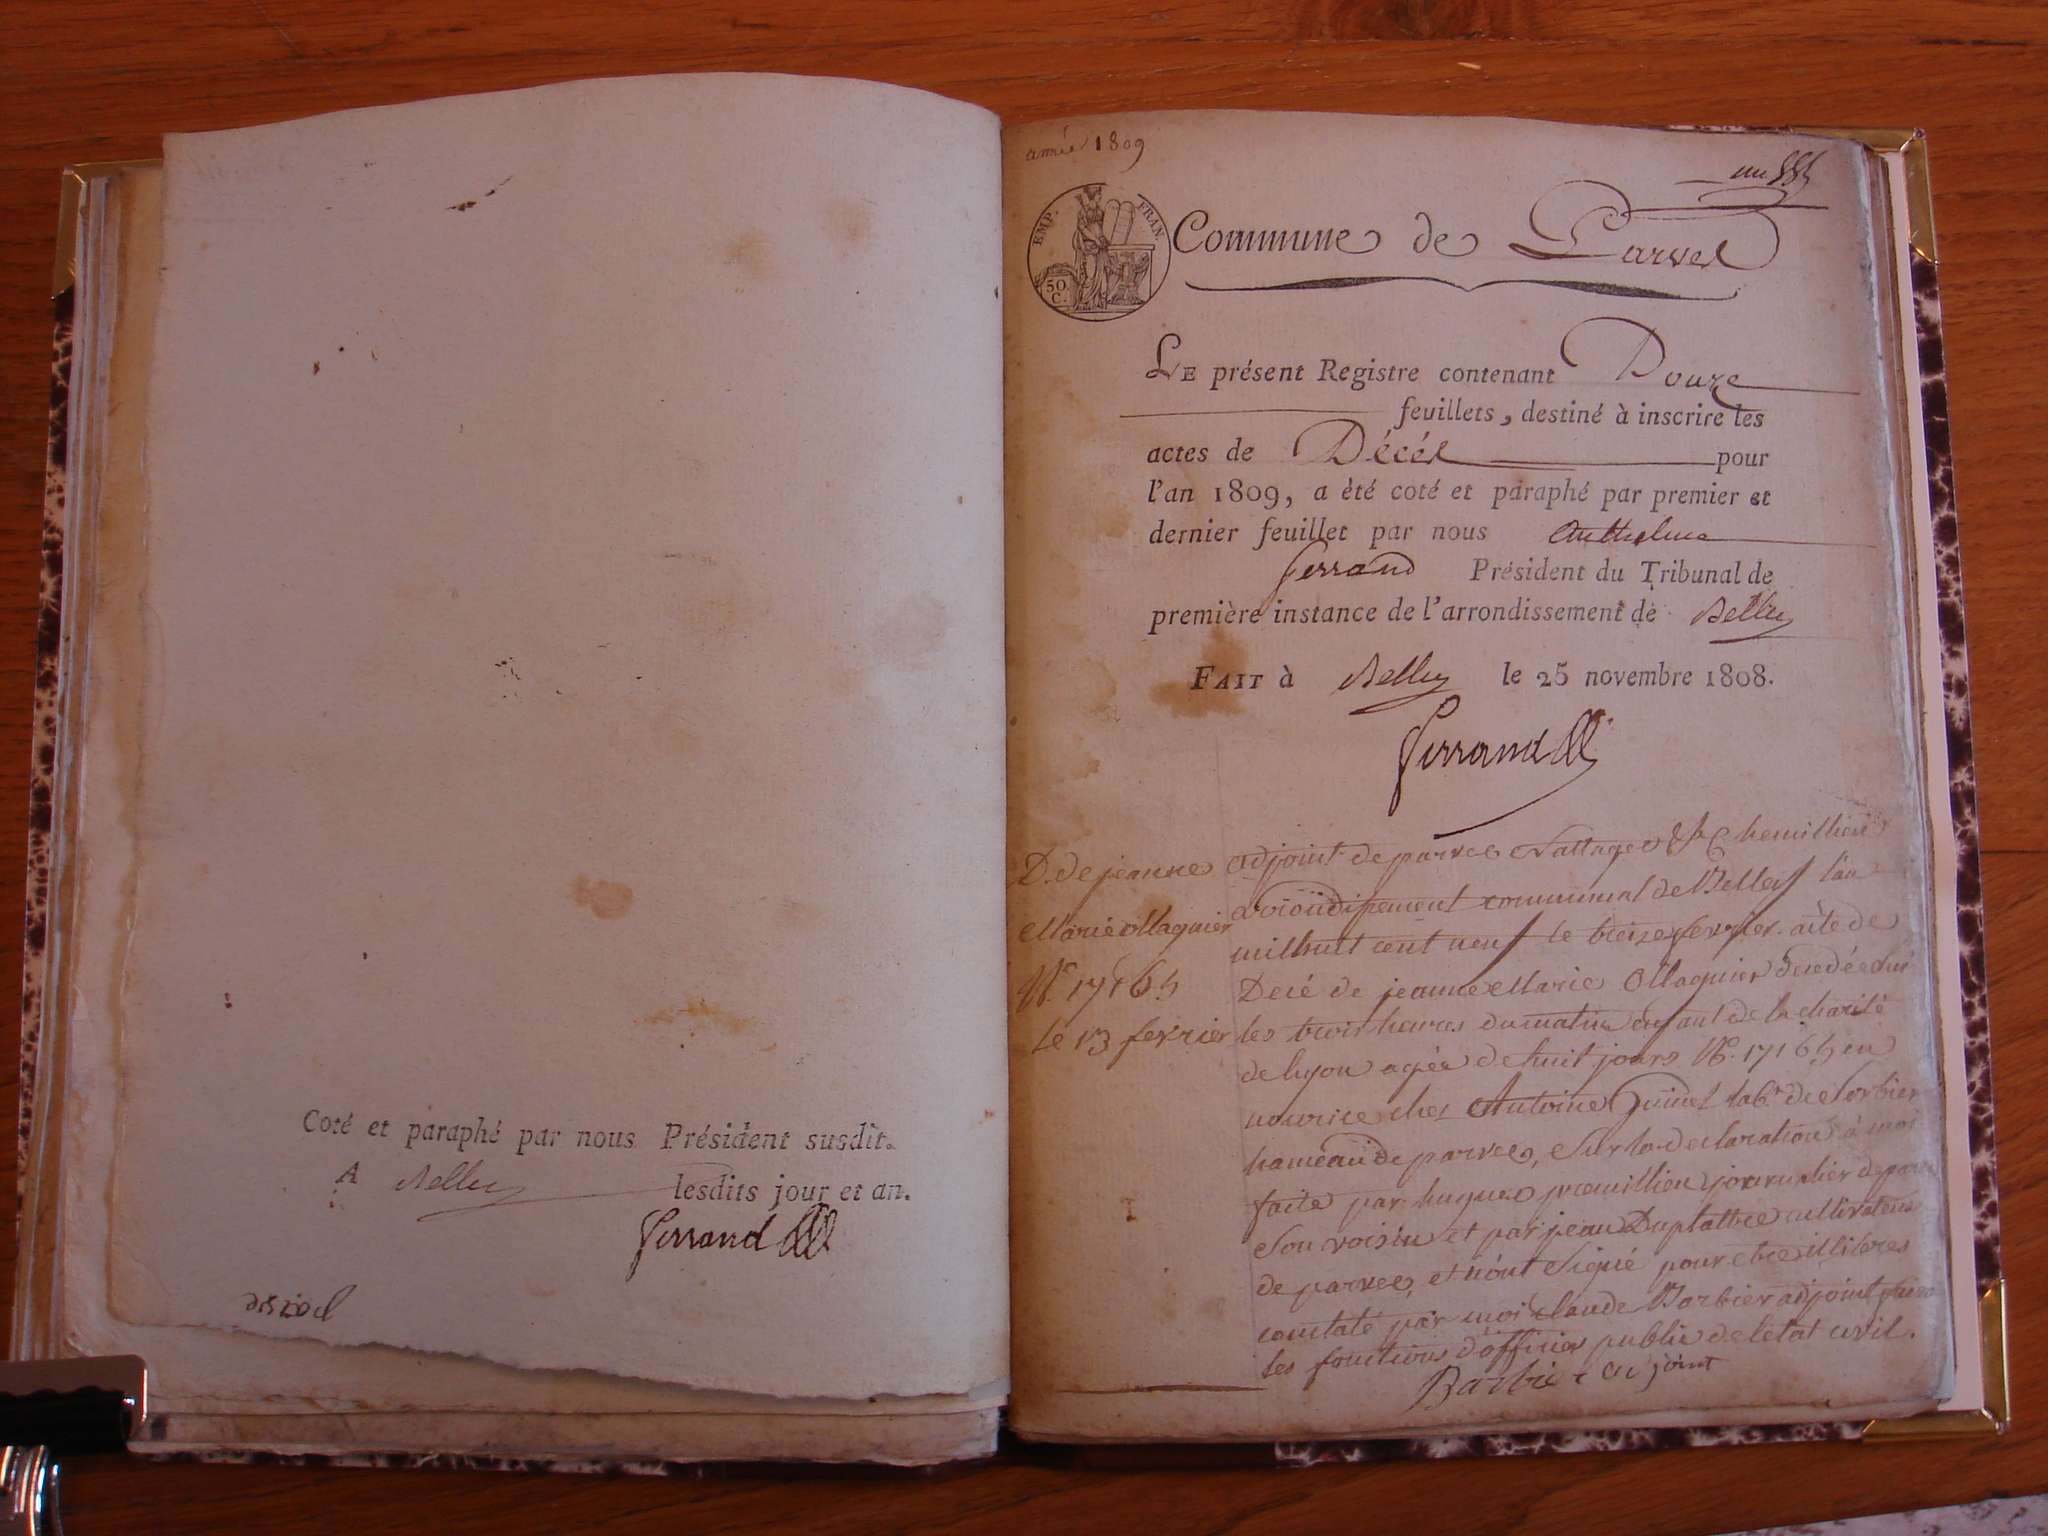 Coté et paraphé par nous Président susdit.
A Belley lesdits jour et an.
Ferrand
année 1809
un
EMP. FRAN.
50 C.
Commune de Parves
LE présent Registre contenant Douze
feuillets, destiné à inscrire les
actes de Décès pour
l'an 1809, a èté coté et paraphé par premier et
dernier feuillet par nous Anthelme
Ferrand Président du Tribunal de
première instance de l'arrondissement de Belley
FAIT à Belley le 25 novembre 1808.
Ferrand
D. de jeanne
Marie Maquier
N.
le 13 fevrier
adjoint de parves Nattages &
arrondissement communal de Belley l'an
mil huit cent neuf le treize fevrier. acte de
Decé de jeanne Marie Maquier decedée
les trois heures du matin enfant de la charité
de lyon agée de huit jours N. en
nourice ches Antoine labr de Sorbier
hameau de parves, Sur la declaration à moi
faite par hugues journalier de
Son voisin et par jean Duplattre cultivateur
de parves, et n'ont Signé pour etre illitres
constaté par moi claude Barbier adjoint
les fonctions d'officier public de l'etat civil.
Barbier adjoint